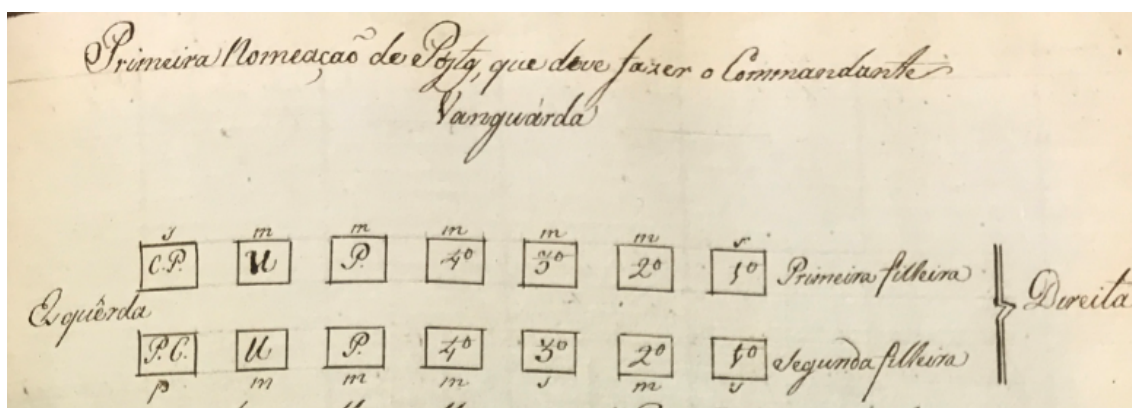 Primeira Nomeação de Postq, que deve fazer o Commandante
Vanguárda
s m m m m m s
C.P. U P. 4º 3º 2º 1º Primeira filheira
Ezquêrda Direita
P.C. U P. 4º 3º 2º 1º Segunda filheira
p m m m s m s